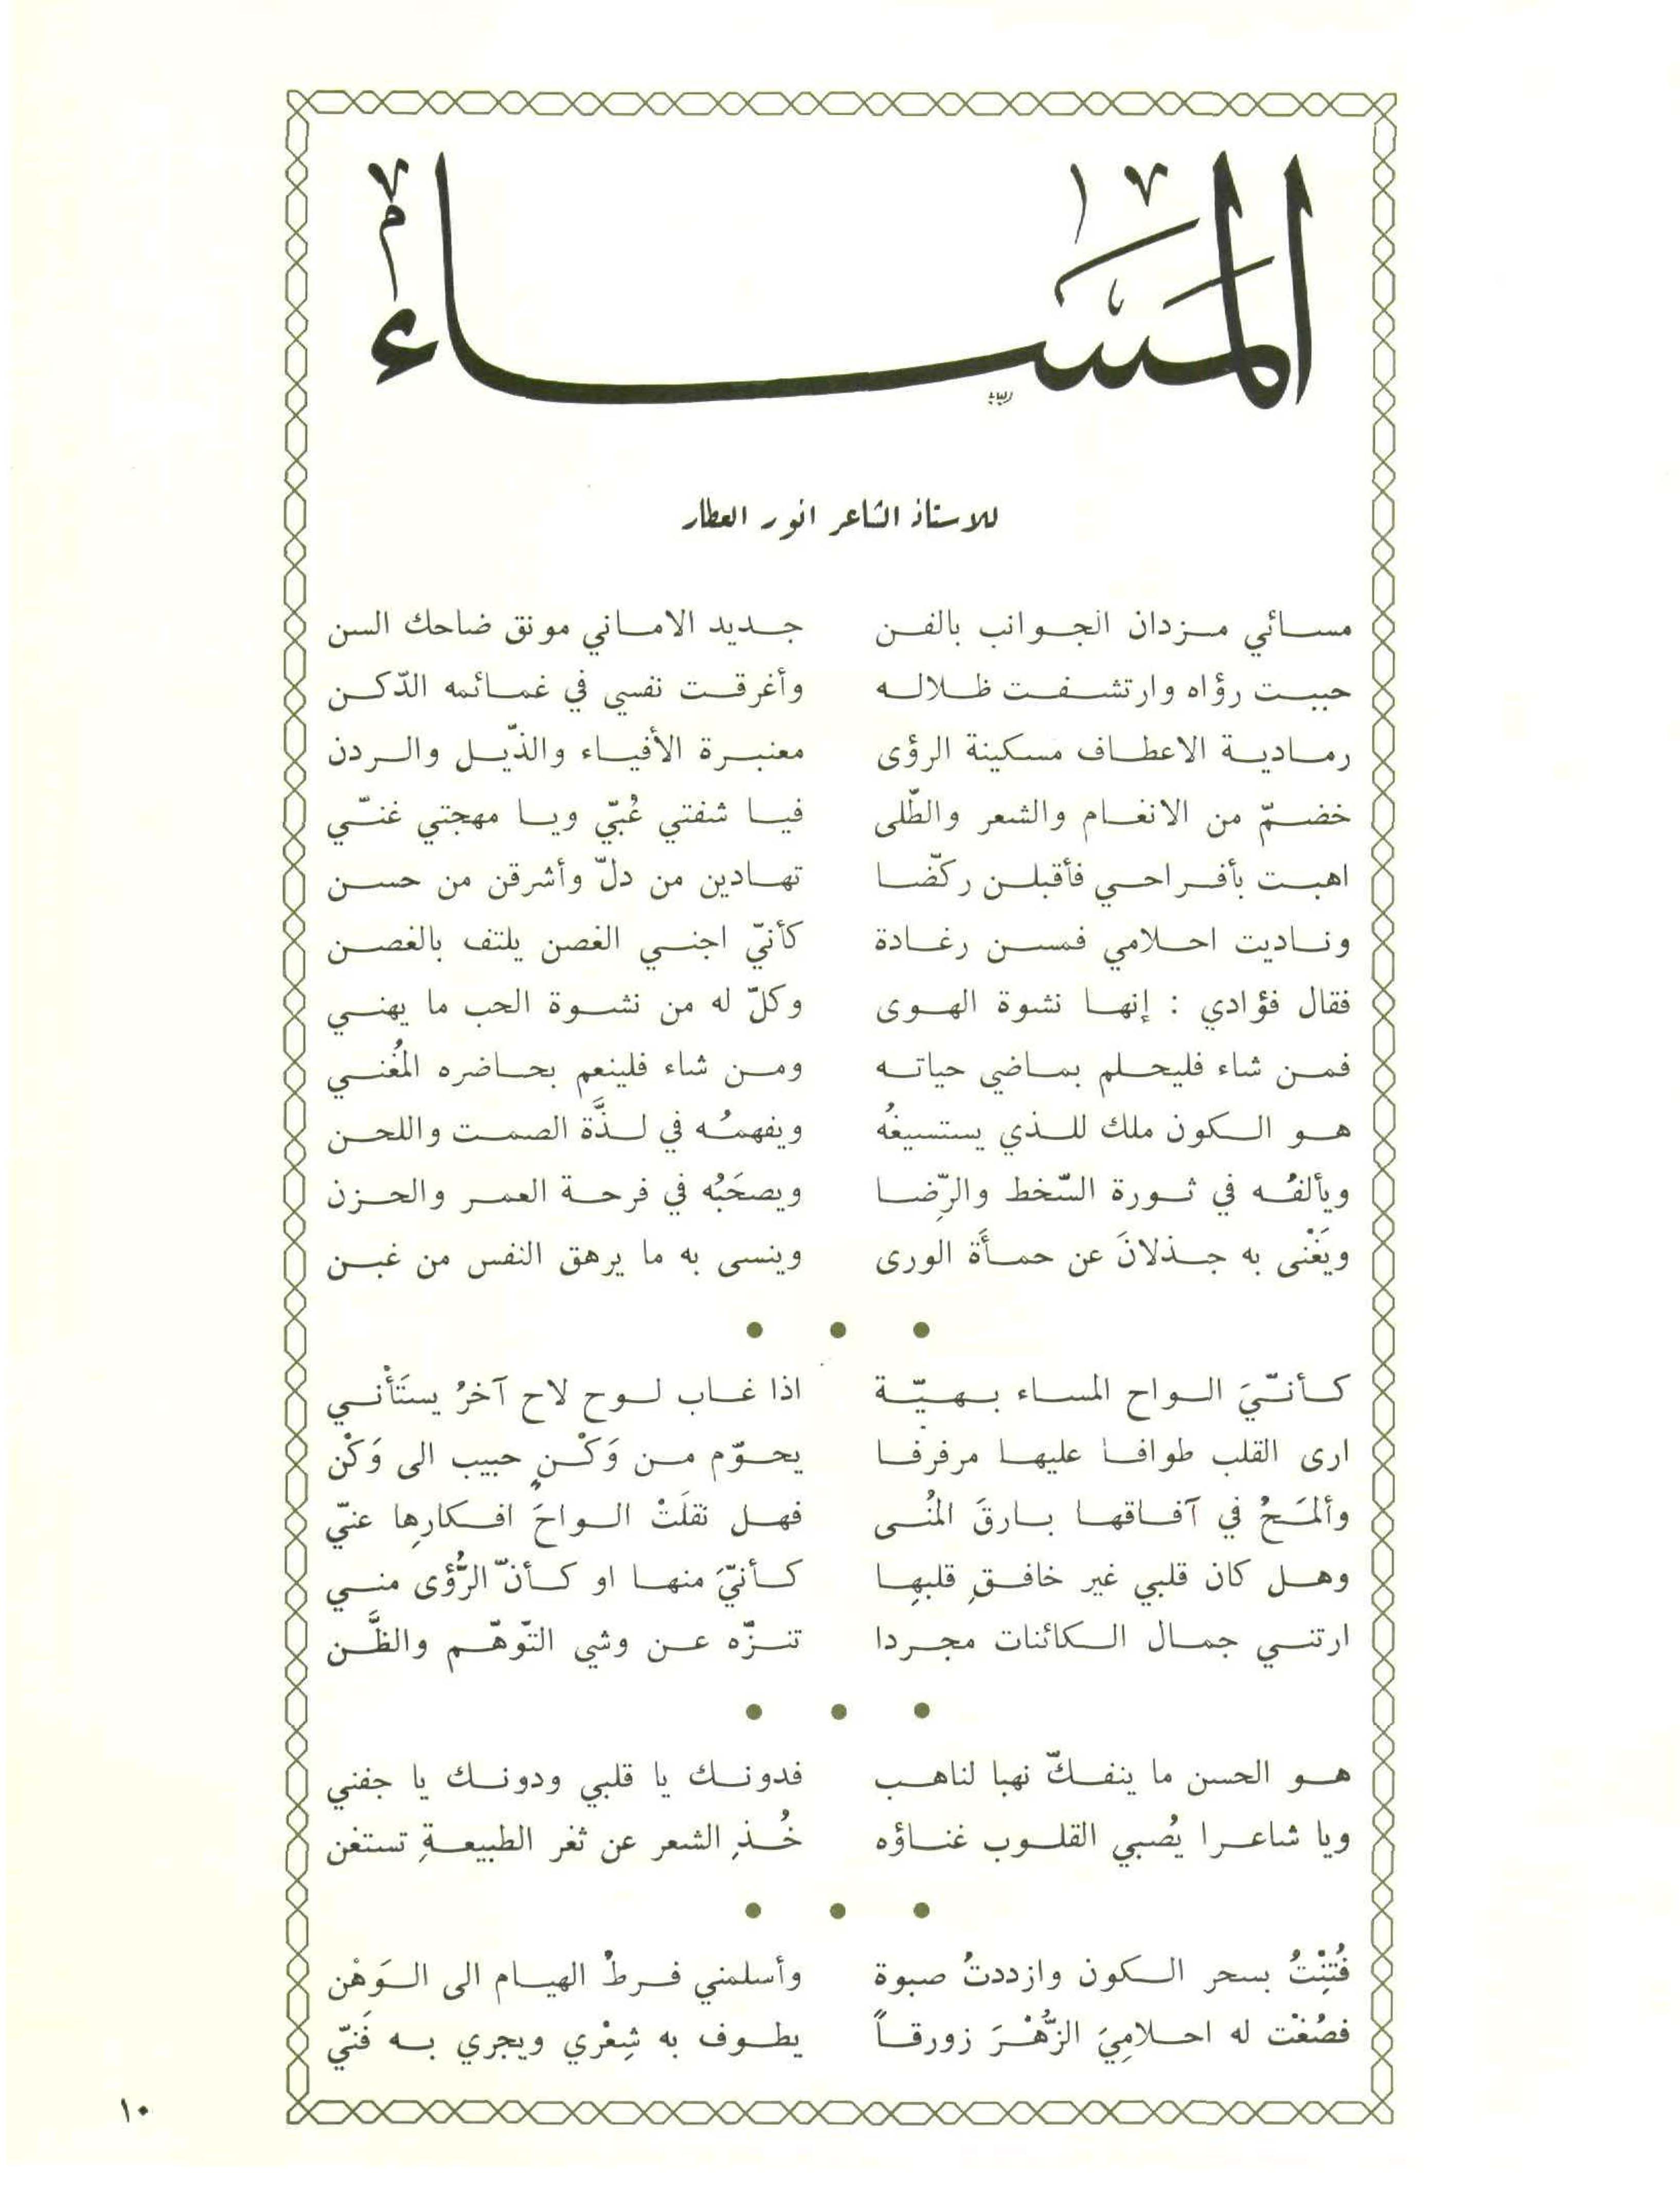 المساء
للاستاذ الشاعر انور العطار
مسائي مزدان الجوانب بالفن جديد الاماني مونق ضاحك السن
حببت رؤاه وارتشفت ظلاله وأغرقت نفسي في غمائمه الدّكن
رمادية الاعطاف مسكينة الرؤى معنبرة الأفياء والذّيل والردن
خضمّ من الانغام والشعر والطّلى فيا شفتي عُبّي ويا مهجتي غنّي
اهبت بأفراحي فأقبلن ركّضا تهادين من دلّ وأشرقن من حسن
وناديت احلامي فمسن رغادة كأنيّ اجني الغصن يلتف بالغصن
فقال فؤادي : إنها نشوة الهوى وكلّ له من نشوة الحب ما يهني
فمن شاء فليحلم بماضي حياته ومن شاء فلينعم بحاضره المُغني
هو الكون ملك للذي يستسيغُه ويفهمُه في لذَّة الصمت واللحن
ويألفُه في ثورة السّخط والرّضا ويصحَبُه في فرحة العمر والحزن
ويَغْنى به جذلانَ عن حمأَة الورى وينسى به ما يرهق النفس من غبن
كأنّيَ الواح المساء بهيّة اذا غاب لوح لاح آخرُ يستَأْني
ارى القلب طوافا عليها مرفرفا يحوّم من وَكْنٍ حبيب الى وَكْن
وألمَحُ في آفاقها بارقَ المُنى فهل نقلَتْ الواحَ افكارِها عنيّ
وهل كان قلبي غير خافقِ قلبِها كأنيَّ منها او كأنّ الرُّؤى مني
ارتني جمال الكائنات مجردا تنزّه عن وشي التّوهّم والظَّن
هو الحسن ما ينفكّ نهبا لناهب فدونك يا قلبي ودونك يا جفني
ويا شاعرا يُصبي القلوب غناؤه خُذِ الشعر عن ثغر الطبيعةِ تستغن
فُتِنْتُ بسحر الكون وازددتُ صبوة وأسلمني فرطُ الهيام الى الوَهْن
فصُغْت له احلامِيَ الزُّهْرَ زورقاً يطوف به شِعْري ويجري به فَنيّ
١٠